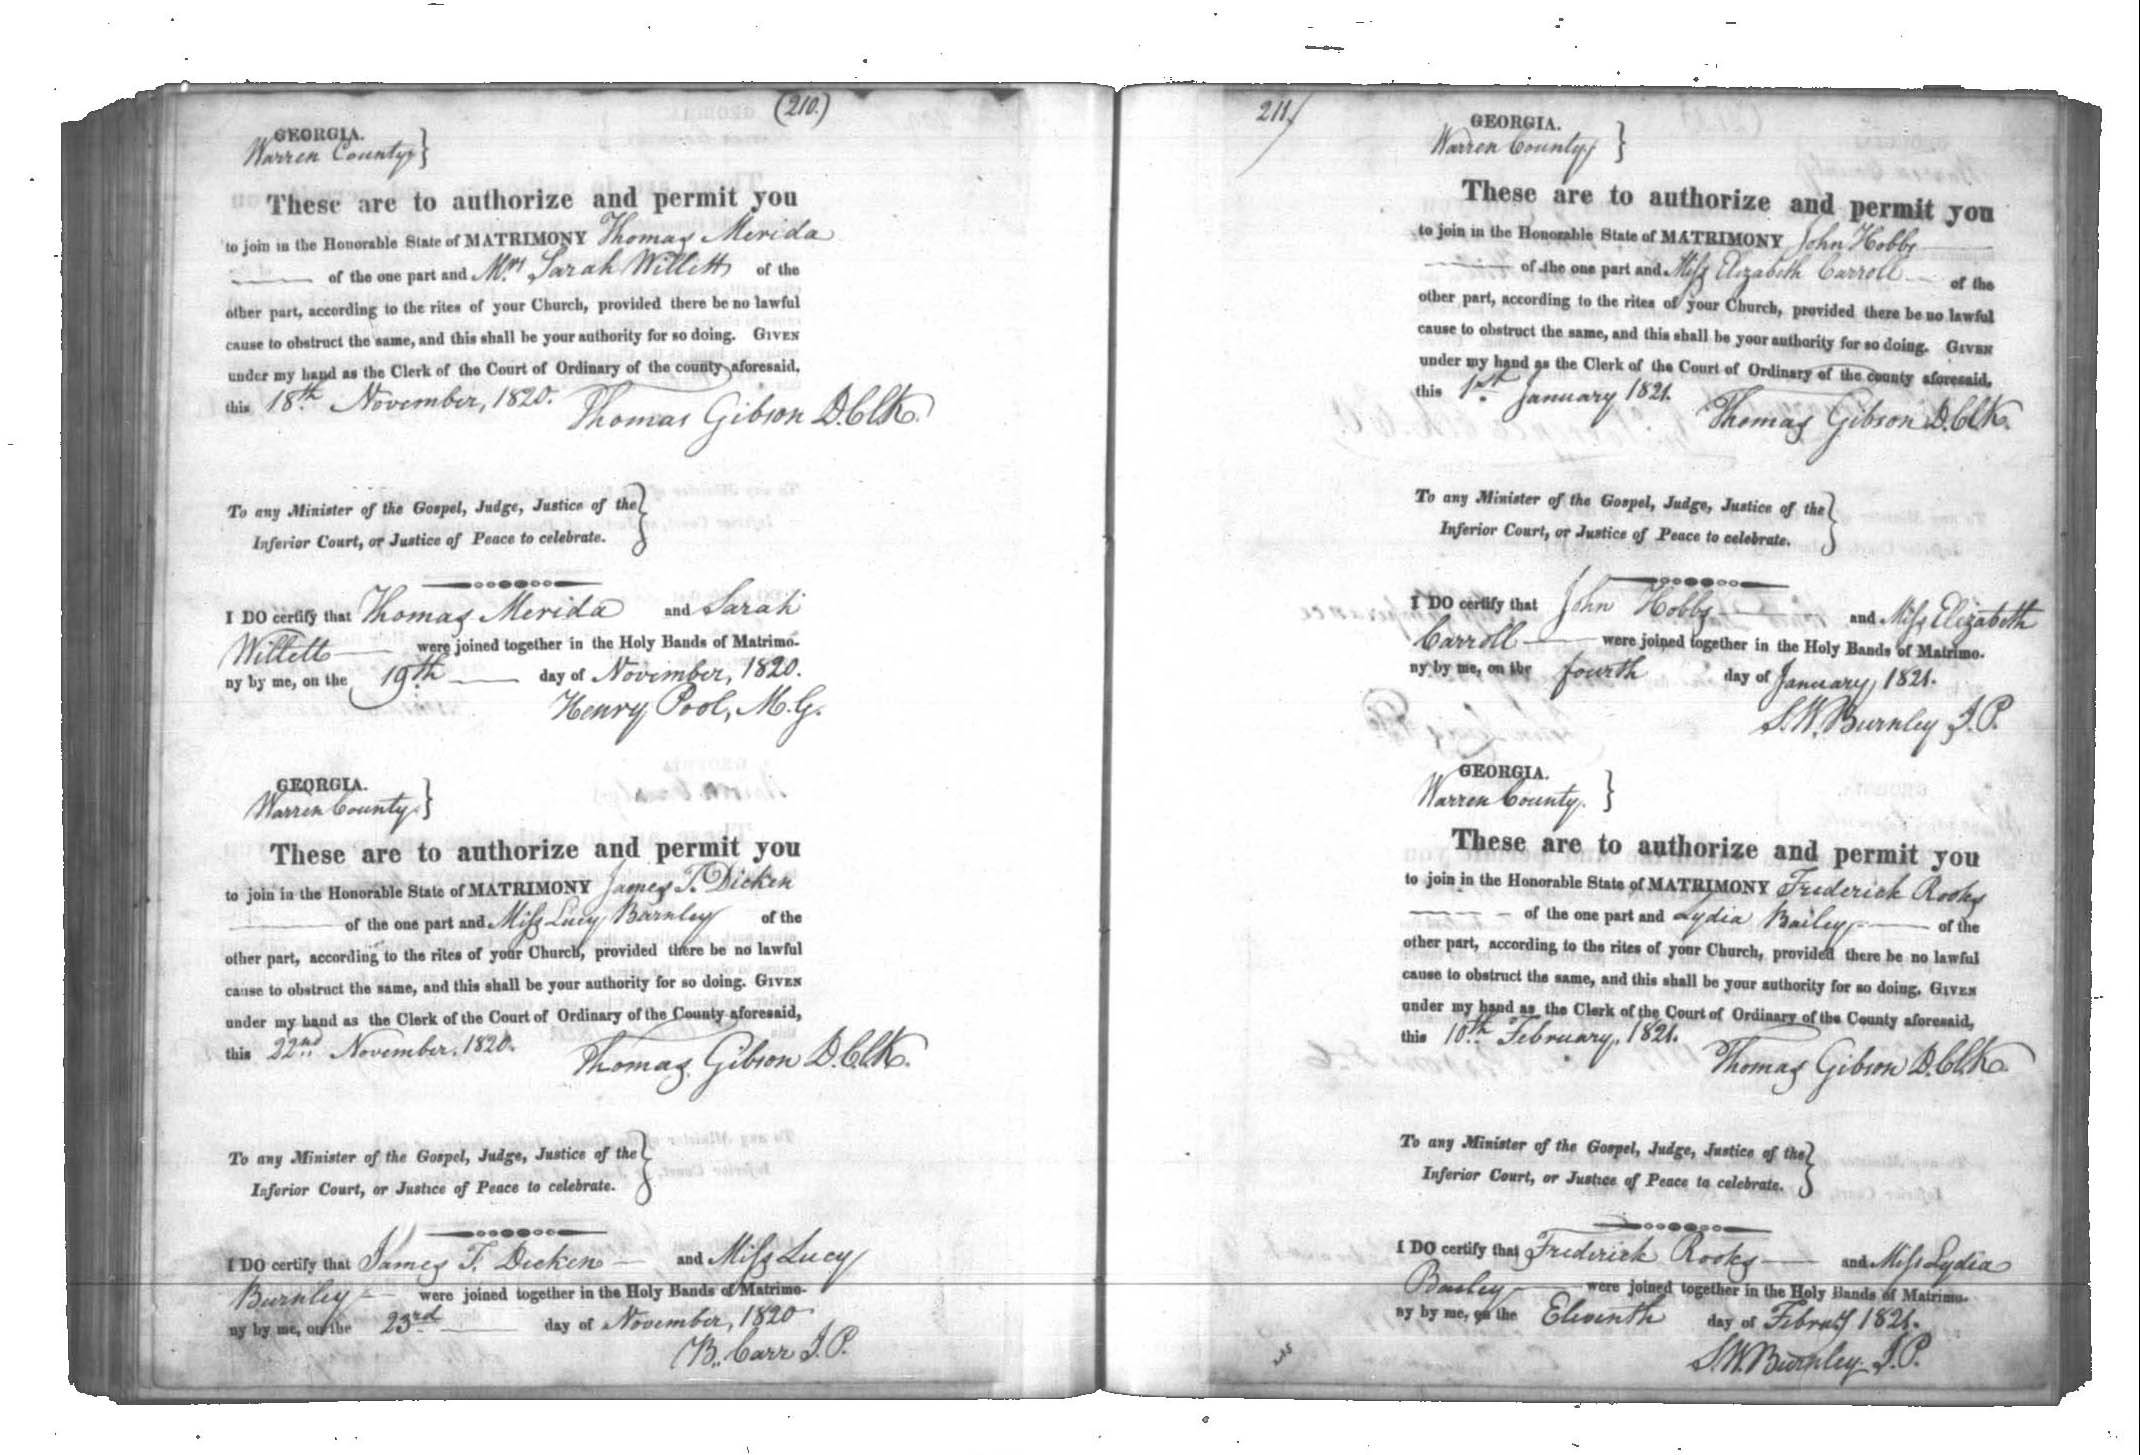 (210.)
GEORGIA.
Warren County }
These are to authorize and permit you
to join in the Honorable State of MATRIMONY Thomas Merida
of the one part and Mrs Sarah Willett of the
other part, according to the rites of your Church, provided there be no lawful
cause to obstruct the same, and this shall be your authority for so doing. GIVEN
under my hand as the Clerk of the Court of Ordinary of the county aforesaid,
this 18th November, 1820.
Thomas Gibson D.ClK.
To any Minister of the Gospel, Judge, Justice of the }
Inferior Court, or Justice of Peace to celebrate.
I DO certify that Thomas Merida and Sarah
Willett were joined together in the Holy Bands of Matrimo-
ny by me, on the 19th day of November, 1820.
Henry Pool, M.G.
GEORGIA.
Warren County. }
These are to authorize and permit you
to join in the Honorable State of MATRIMONY James T. Dicken
of the one part and Miss Lucy Burnley of the
other part, according to the rites of your Church, provided there be no lawful
cause to obstruct the same, and this shall be your authority for so doing. GIVEN
under my hand as the Clerk of the Court of Ordinary of the County aforesaid,
this 22nd November, 1820.
Thomas Gibson D.ClK.
To any Minister of the Gospel, Judge, Justice of the }
Inferior Court, or Justice of Peace to celebrate.
I DO certify that James T. Dicken and Miss Lucy
Burnley were joined together in the Holy Bands of Matrimo-
ny by me, on the 23rd day of November, 1820
B. Carr J.P.
211
GEORGIA.
Warren County }
These are to authorize and permit you
to join in the Honorable State of MATRIMONY John Hobbs
of the one part and Miss Elizabeth Carroll of the
other part, according to the rites of your Church, provided there be no lawful
cause to obstruct the same, and this shall be your authority for so doing. GIVEN
under my hand as the Clerk of the Court of Ordinary of the county aforesaid,
this 1st January 1821.
Thomas Gibson D.ClK.
To any Minister of the Gospel, Judge, Justice of the }
Inferior Court, or Justice of Peace to celebrate.
I DO certify that John Hobbs and Miss Elizabeth
Carroll were joined together in the Holy Bands of Matrimo-
ny by me, on the fourth day of January, 1821.
S.W. Burnley J.P.
GEORGIA.
Warren County. }
These are to authorize and permit you
to join in the Honorable State of MATRIMONY Frederick Rooks
of the one part and Lydia Bailey of the
other part, according to the rites of your Church, provided there be no lawful
cause to obstruct the same, and this shall be your authority for so doing. GIVEN
under my hand as the Clerk of the Court of Ordinary of the County aforesaid,
this 10th February, 1821.
Thomas Gibson D.ClK.
To any Minister of the Gospel, Judge, Justice of the }
Inferior Court, or Justice of Peace to celebrate.
I DO certify that Frederick Rooks and Miss Lydia
Bailey were joined together in the Holy Bands of Matrimo-
ny by me, on the Eleventh day of Febray 1821.
S.W. Burnley J.P.